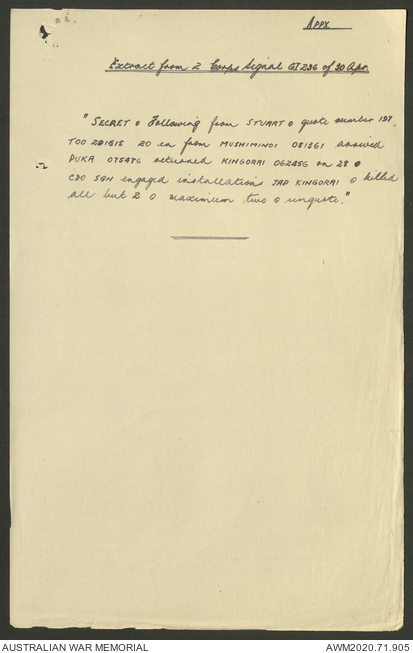 APPX
Extract from 2 Corps Signal GI 236 of 30 Apr.
"SECRET o Following from STUART o quote number 197.
TOO 291815 20 en from MUSHIMINOI 081361 arrived
PUKA 075476 returned KINGORAI 062456 on 28 o
CDO SQN engaged installations JAP KINGORAI o killed
all but 2 o maximum two o unquote."
AUSTRALIAN WAR MEMORIAL
AWM2020.71.905